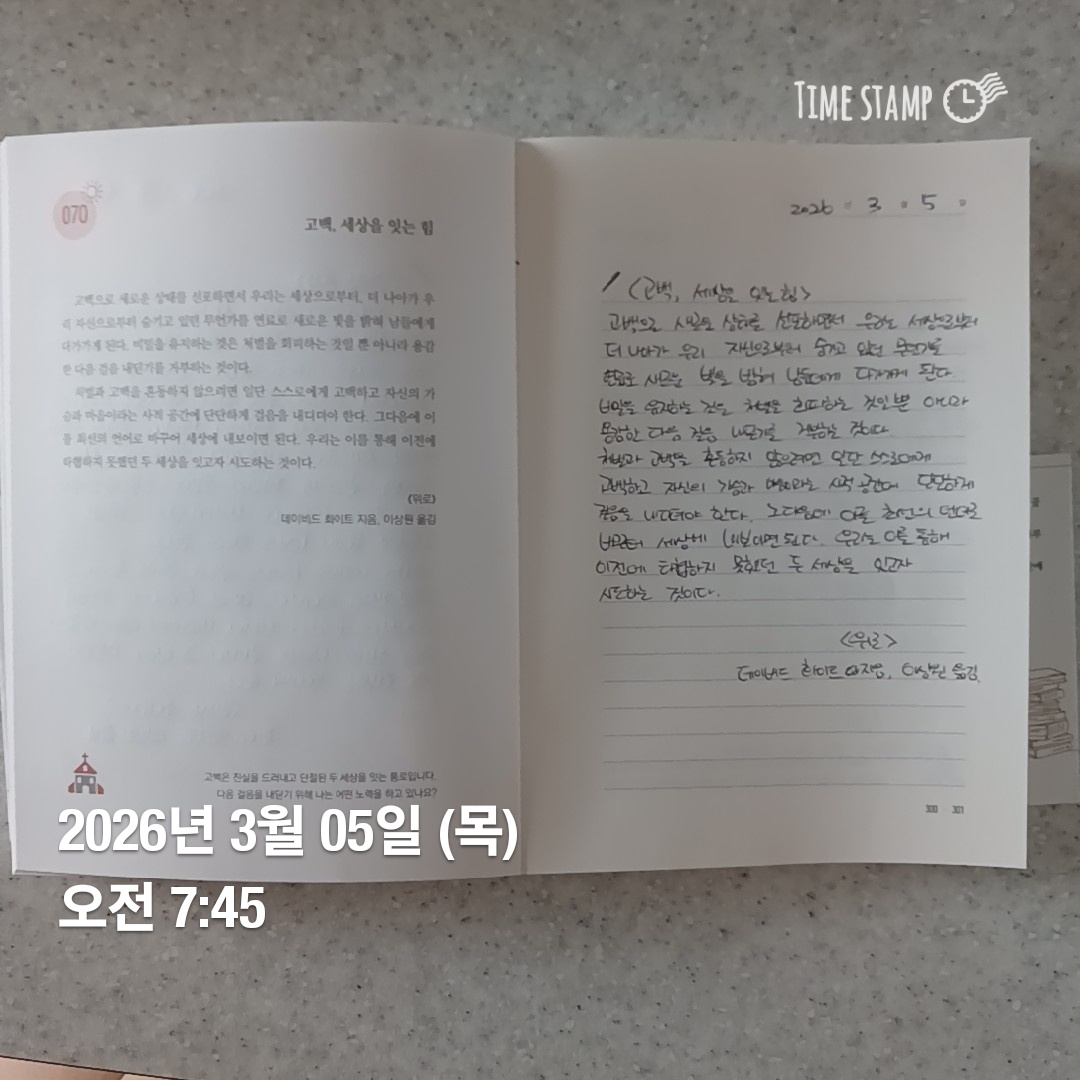 TIME STAMP
070
고백, 세상을 잇는 힘
고백으로 새로운 상태를 선포하면서 우리는 세상으로부터, 더 나아가 우
리 자신으로부터 숨기고 있던 무언가를 연료로 새로운 빛을 밝혀 남들에게
다가가게 된다. 비밀을 유지하는 것은 처벌을 회피하는 것일 뿐 아니라 용감
한 다음 걸음 내딛기를 거부하는 것이다.
처벌과 고백을 혼동하지 않으려면 일단 스스로에게 고백하고 자신의 가
슴과 마음이라는 사적 공간에 단단하게 걸음을 내디뎌야 한다. 그다음에 이
를 최선의 언어로 바꾸어 세상에 내보이면 된다. 우리는 이를 통해 이전에
타협하지 못했던 두 세상을 잇고자 시도하는 것이다.
《위로》
데이비드 화이트 지음, 이상원 옮김
고백은 진실을 드러내고 단절된 두 세상을 잇는 통로입니다.
다음 걸음을 내딛기 위해 나는 어떤 노력을 하고 있나요?
2026 년 3 월 5 일
<고백, 세상을 잇는 힘>
고백으로 새로운 상태를 선포하면서 우리는 세상으로부터
더 나아가 우리 자신으로부터 숨기고 있던 무언가를
연료로 새로운 빛을 밝혀 남들에게 다가가게 된다.
비밀을 유지하는 것은 처벌을 회피하는 것일 뿐 아니라
용감한 다음 걸음 내딛기를 거부하는 것이다.
처벌과 고백을 혼동하지 않으려면 일단 스스로에게
고백하고 자신의 가슴과 마음이라는 사적 공간에 단단하게
걸음을 내디뎌야 한다. 그다음에 이를 최선의 언어로
바꾸어 세상에 내보이면 된다. 우리는 이를 통해
이전에 타협하지 못했던 두 세상을 잇고자
시도하는 것이다.
<위로>
데이비드 화이트 지음, 이상원 옮김.
300 301
2026년 3월 05일 (목)
오전 7:45